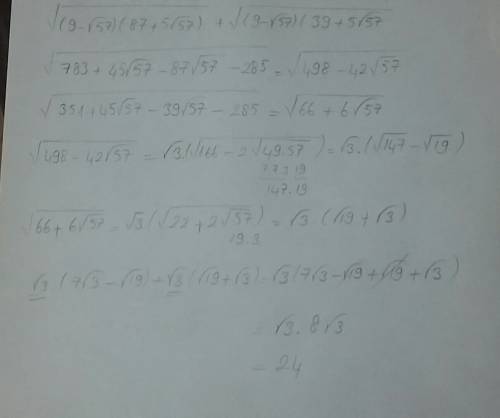 √(9-√57)(87+5√57) + √(9-√57)(39+5√57
√783+45√57-87√57-285 = √498-42√57
√351+45√57-39√57-285 = √66+6√57
√498-42√57 = √3.(√166-2√49.57) = √3.(√147-√19)
7 7 3 19
147.19
√66+6√57 = √3(√22+2√57) = √3 (√19+√3)
19.3
√3 (7√3-√19)+√3(√19+√3)=√3(7√3-√19+√19+√3)
= √3.8√3
= 24